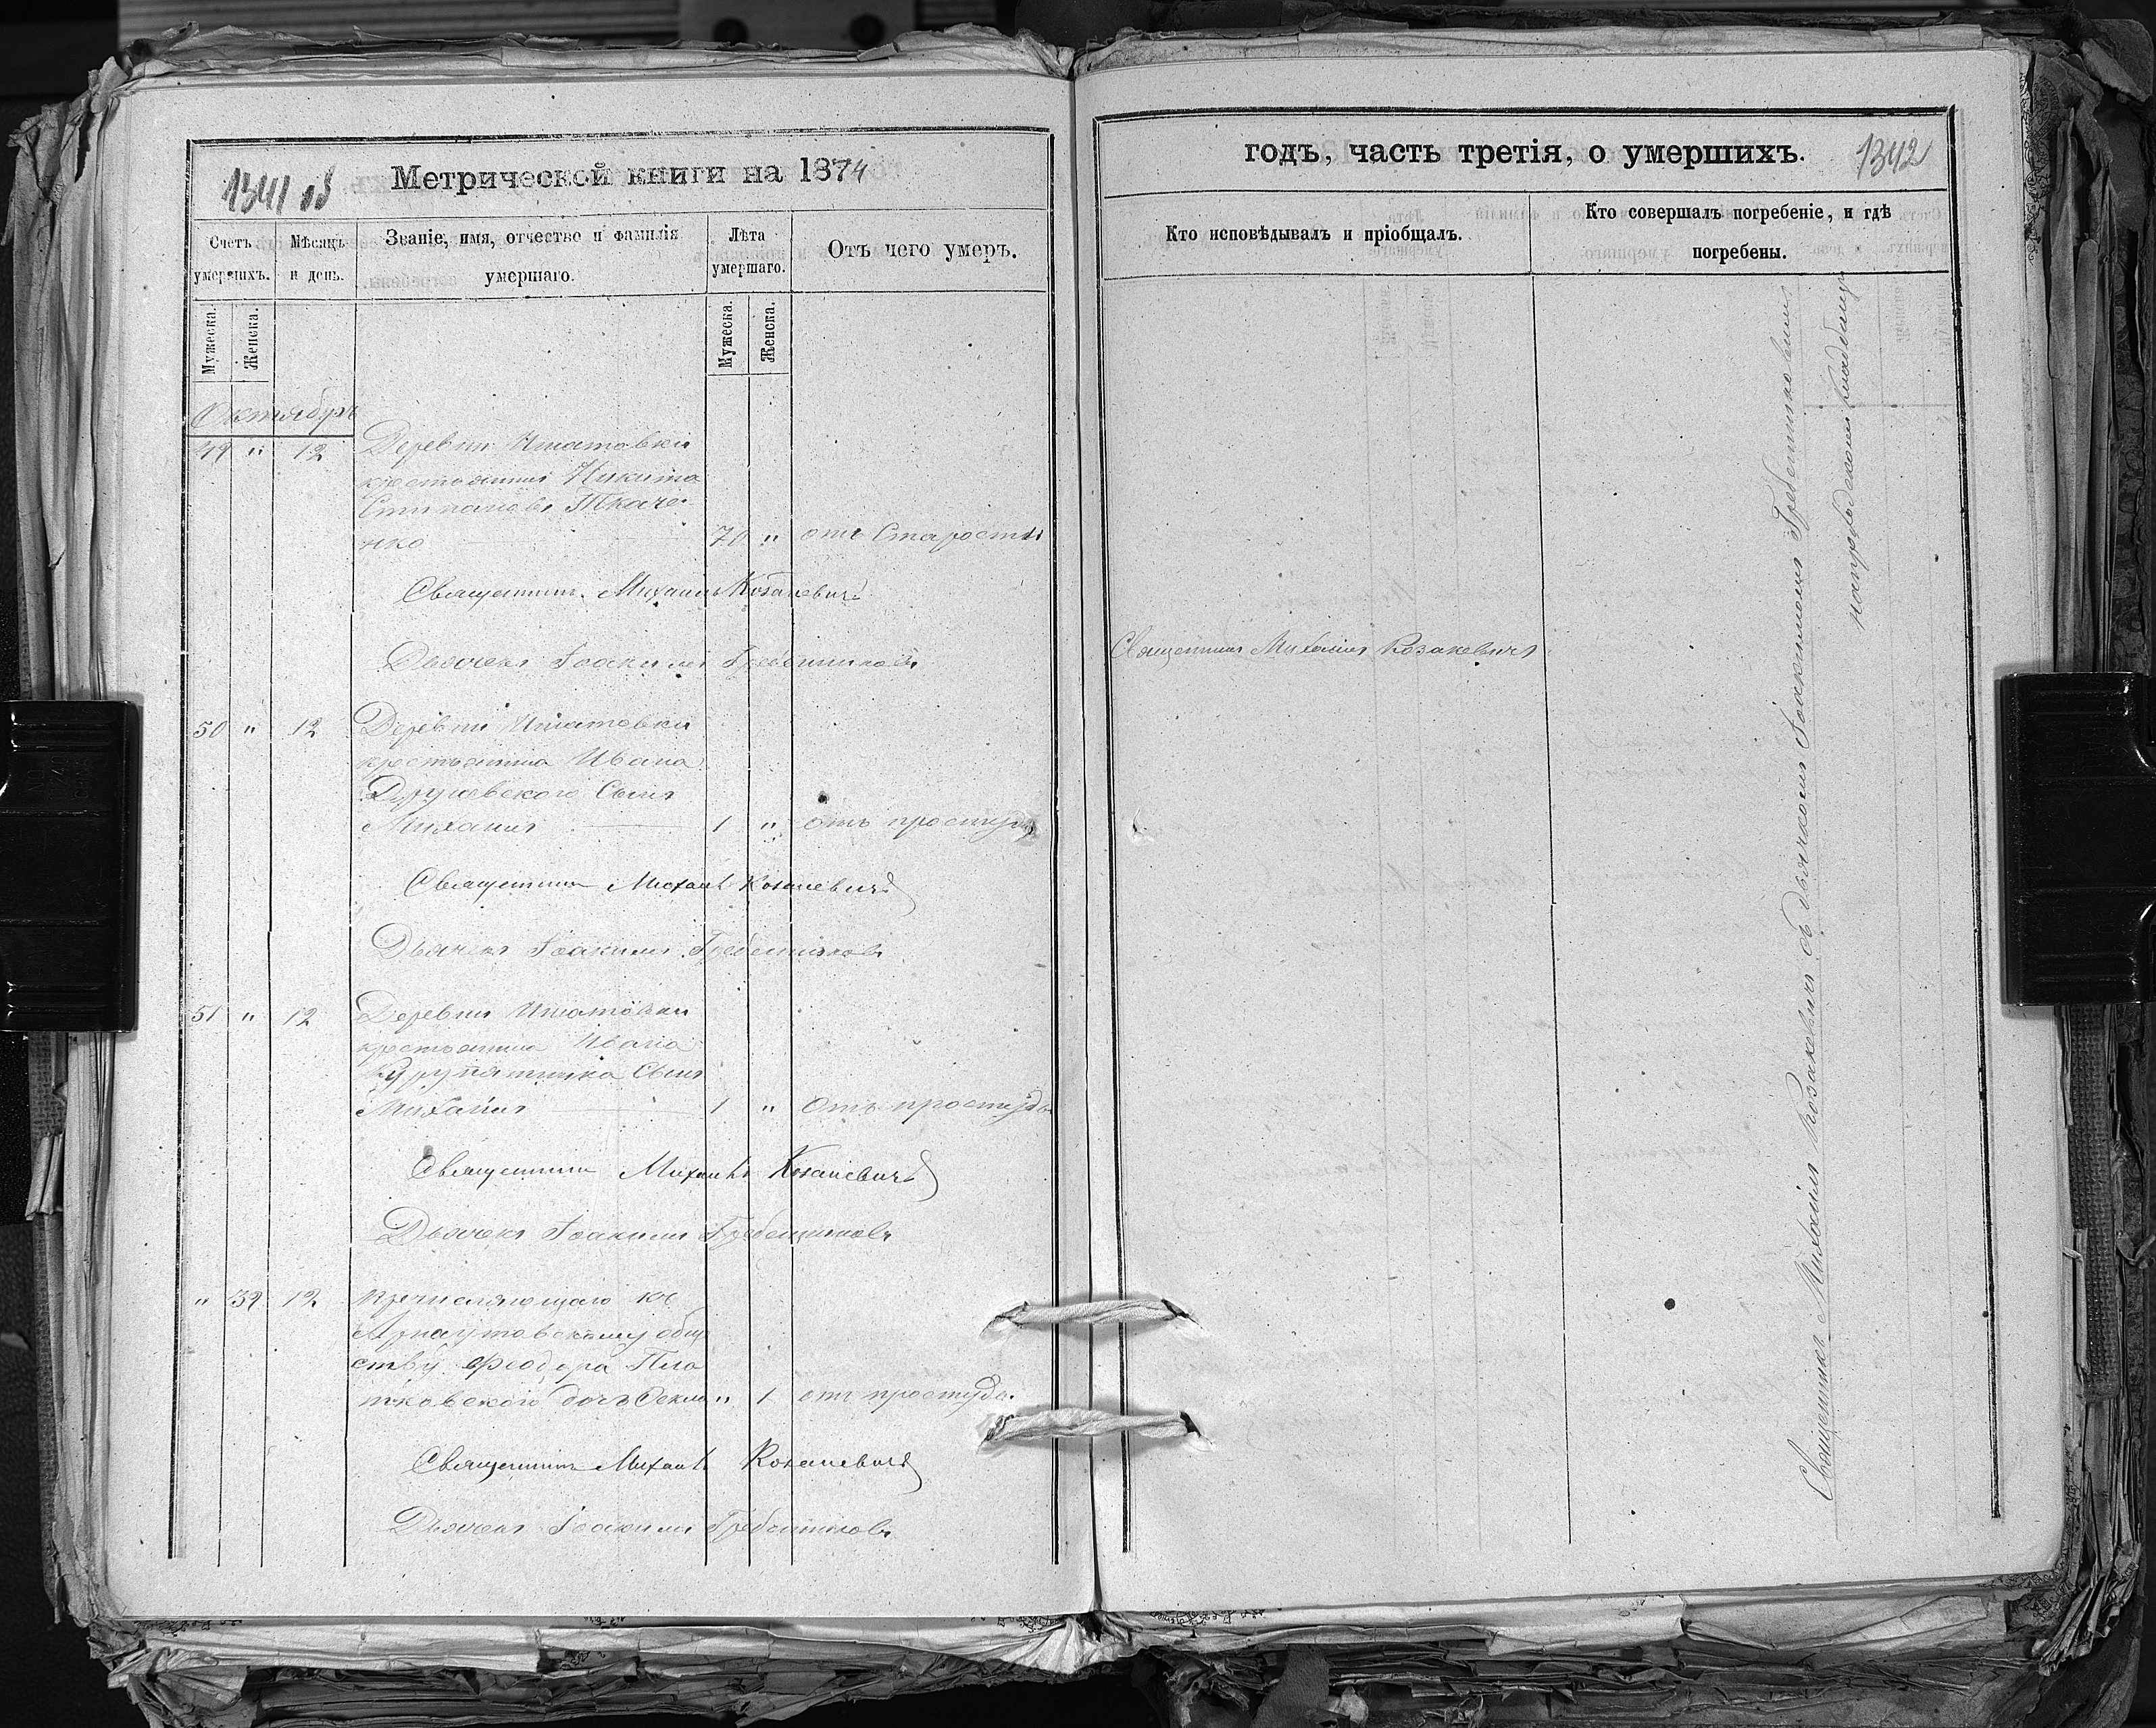 1341 об
Метрической книги на 1874
Счетъ умершихъ.
Мѣсяцъ и день.
Званіе, имя, отчество и фамилія умершаго.
Лѣта умершаго.
Отъ чего умеръ.
Мужеска.
Женска.
Мужеска.
Женска.
Октябрь
49 " 12 Деревни Игнатовки
крестьянинъ Никита
Стипановъ Ткаче-
нко 70 " отъ Старости
Священникъ Михаилъ Козакевичъ
Дьячекъ Іоакимъ Гребенниковъ
50 " 12 Деревни Игнатовки
крестьянина Ивана
сынъ
Михаилъ 1 " отъ простуды
Священникъ Михаилъ Козакевичъ
Дьячекъ Іоакимъ Гребенниковъ
51 " 12 Деревни Игнатовки
крестьянина Ивана
сынъ
Михаилъ 1 " Отъ простуды
Священникъ Михаилъ Козакевичъ
Дьячекъ Іоакимъ Гребенниковъ
" 39 12 къ
Арнаутовскому обще
ству Феодора Пла
тковского дочь Фекла " 1 отъ простуды.
Священникъ Михаилъ Козакевичъ
Дьячекъ Іоакимъ Гребенниковъ
годъ, часть третія, о умершихъ.
1342
Кто исповѣдывалъ и пріобщалъ.
Кто совершалъ погребеніе, и гдѣ погребены.
Священникъ Михаилъ Козакевичъ
Священникъ Михаилъ Козакевичъ съ дьячкомъ Іоакимомъ Гребенниковымъ
на приходскомъ кладбищѣ